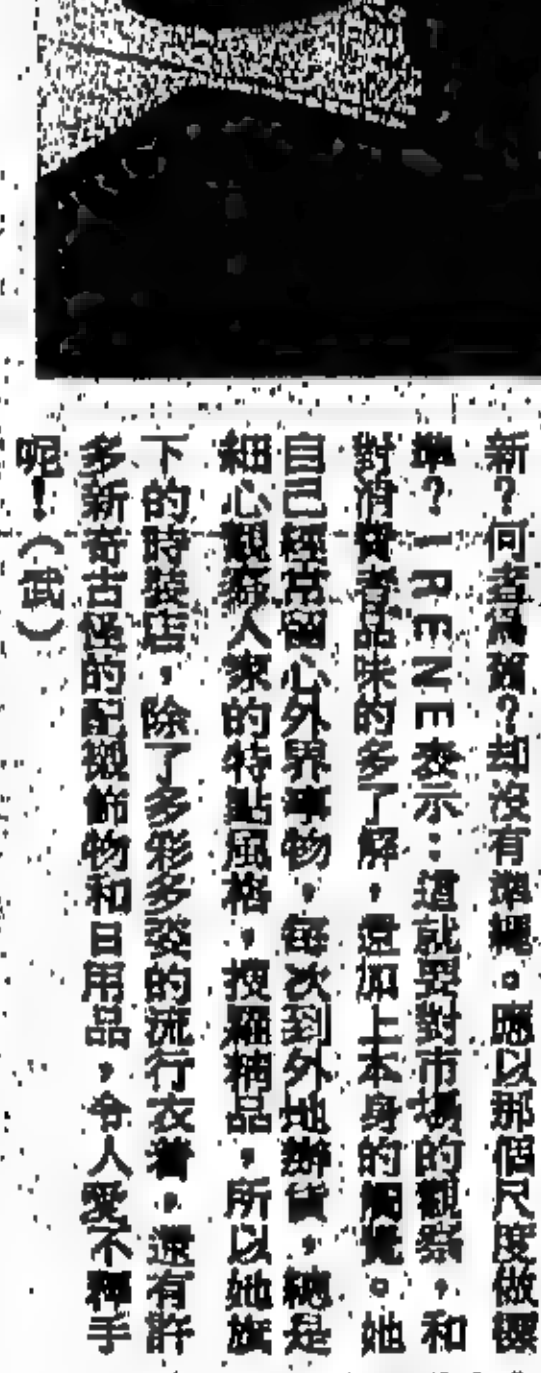 新？何者爲舊？却沒有準繩。應以那個尺度做標
準？IRENE表示：這就要對市場的觀察，和
對消費者品味的多了解，並加上本身的觸覺。她
自己經常留心外界事物，每次到外地辦貨，總是
細心觀察人家的特點風格，搜羅精品，所以她旗
下的時裝店，除了多彩多姿的流行衣着，還有許
多新奇古怪的配襯飾物和日用品，令人愛不釋手
呢！（武）